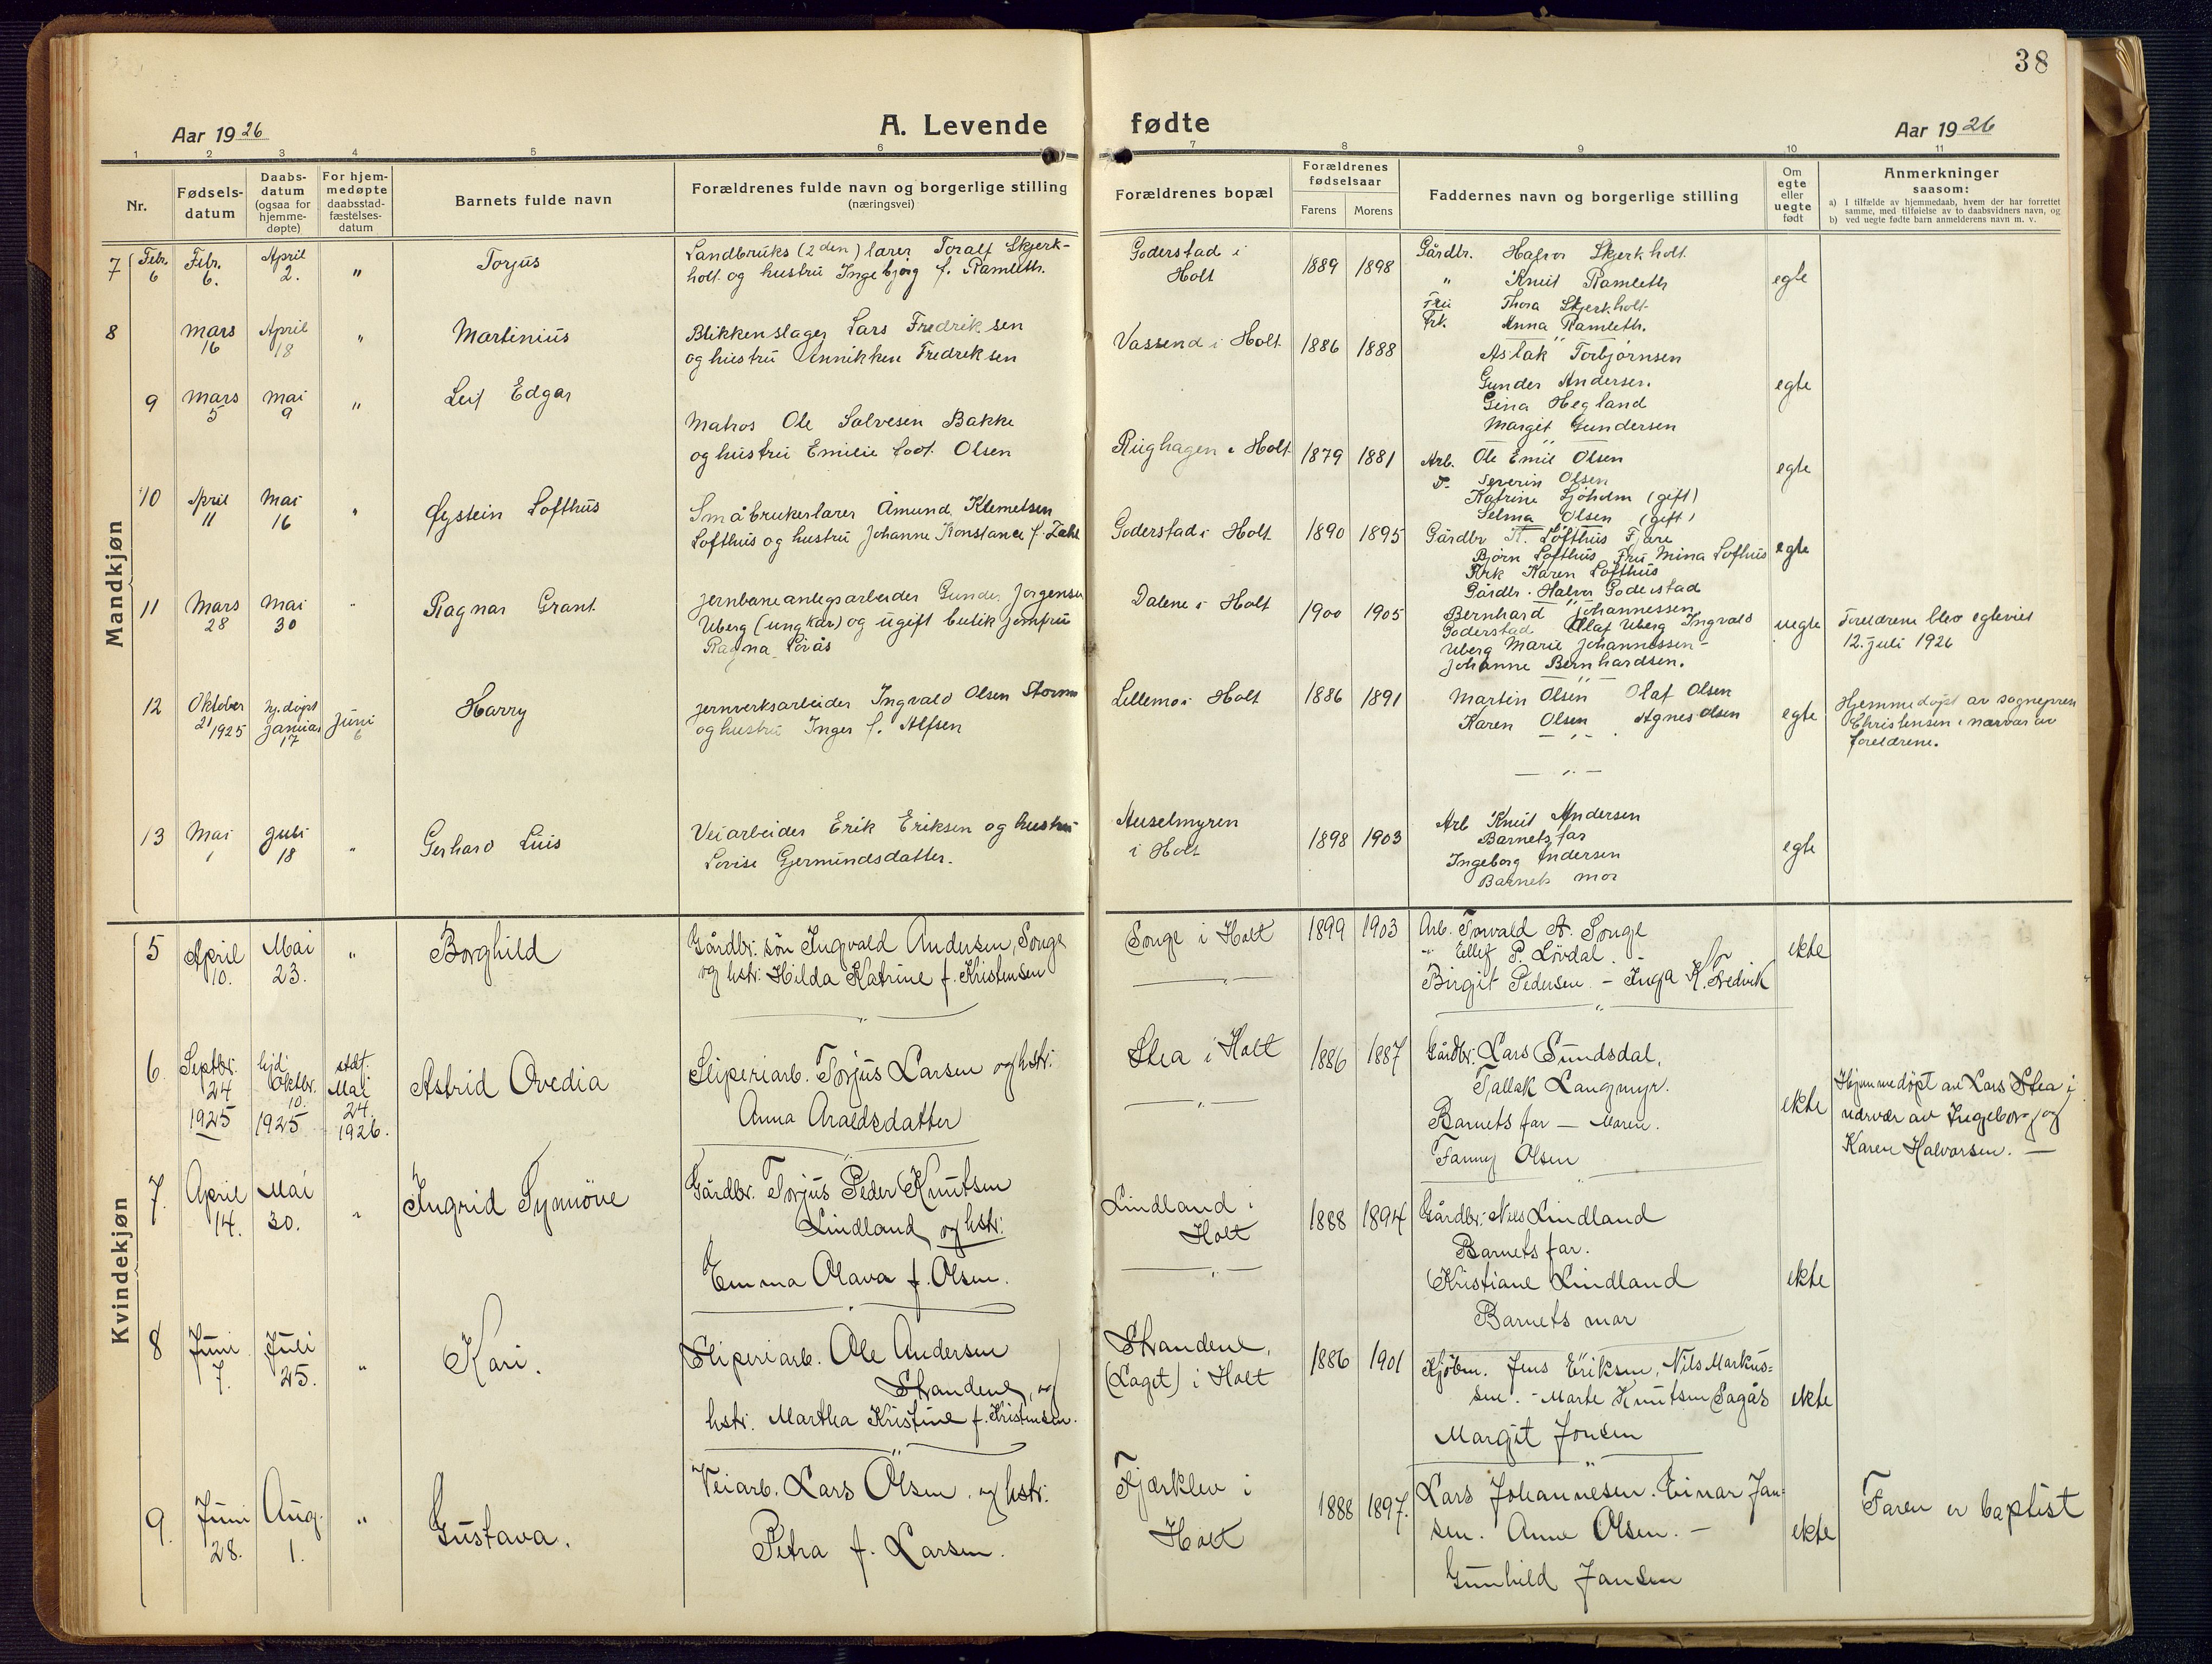 38
Aar 1926
A. Levende fødte
Aar 1926
1 2 3 4 5 6 7 8 9 10 11
Nr.
Fødsels-
datum
Daabs-
datum
(ogsaa for
hjemme-
døpte)
For hjem-
medøpte
daabsstad-
fæstelses-
datum
Barnets fulde navn
Forældrenes fulde navn og borgerlige stilling
(næringsvei)
Forældrenes bopæl
Forældrenes
fødselsaar
Farens Morens
Faddernes navn og borgerlige stilling
Om
egte
eller
uegte
født
Anmerkninger
saasom:
a) I tilfælde av hjemmedaab, hvem der har forrettet
samme, med tilføielse av to daabsvidners navn, og
b) ved uegte fødte barn anmelderens navn m. v.
Mandkjøn
7 Febr. 6 Febr. 6. April 2. " Torjus
Landbruks (2den) lærer Toralf Skjerk-
holt og hustru Ingebjørg f. Ramleth.
Goderstad i
Holt
1889 1898
Gårdbr. Halvor Skjerkholt
" Knut Ramleth
Fru Thora Skjerkholt
Frk. Anna Ramleth.
egte
8 Mars 16 April 18 " Martinius
Blikkenslager Lars Fredriksen
og hustru Annikken Fredriksen
Vassend i Holt 1886 1888
Aslak Torbjørnsen
Gunder Andersen.
Gina Hegland
Margit Gundersen
egte
9 Mars 5 Mai 9 " Leif Edgar
Matros Ole Salvesen Bakke
og hustru Emilie født Olsen
Rughagen i Holt 1879 1881
Arb. Ole Emil Olsen
Severin Olsen
Katrine Sjøholm (gift)
Selma Olsen (gift)
egte
10 April 11 Mai 16 " Øystein Lofthus
Småbrukerlærer Amund Klemetsen
Lofthus og hustru Johanne Konstance f.
Goderstad i Holt 1890 1895
Gårdbr Lofthus Fjære
Bjørn Lofthus Fru Mina Lofthus
Frk Karen Lofthus
Gårdbr. Halvor Goderstad
egte
11 Mars 28 Mai 30 " Ragnar Grant
Jernbaneanlegsarbeider Gunder Jørgensen
Uberg (ungkar) og ugift butikjomfru
Ragna Lørås
Dalene i Holt 1900 1905
Bernhard Johannessen
Goderstad Olaf Uberg Ingvald
Uberg Marie Johannessen -
Johanne Bernhardsen.
uegte
Foreldrene blev egteviet
12. juli 1926
12 Oktober 21 1925 hj. døpt januar 17 Juni 6 Harry
Jernverksarbeider Ingvald Olsen Stormo
og hustru Inger f. Alfsen
Lillemo i Holt 1886 1891
Martin Olsen Olaf Olsen
Karen Olsen Agnes Olsen
egte
Hjemmedøpt av sogneprest
Christensen i nærvær av
foreldrene.
13 Mai 1 Juli 18 " Gerhard Luis
Veiarbeider Erik Eriksen og hustru
Lovise Gjermundsdatter.
Auselmyren
i Holt
1898 1903
Arb Knut Andersen
Barnets far
Ingeborg Andersen
Barnets mor
egte
Kvindekjøn
5 April 10. Mai 23. " Borghild
Gårdbr. søn Ingvald Andersen, Songe
og hstr. Hilda Katrine f. Kristensen
Songe i Holt 1899 1903
Arb. Torvald A. Songe
" Ellef P. Lövdal. -
Birgit Pedersen - Inga K. Fredvik
ekte
6. Septbr. 24 1925 hjd. Oktbr. 10. 1925 stdf. Mai 24. 1926. Astrid Ovedia
Sliperiarb. Torjus Larsen og hstr.
Anna Araldsdatter
Stea i Holt 1886 1887
Gårdbr. Lars Sundsdal,
Tallak Langmyr.
Barnets far - Maren.
Fanny Olsen
ekte
Hjemmedøpt av Lars Stea i
nærvær av Ingeborg og
Karen Halvorsen. -
7. April 14. Mai 30. " Ingrid Synnöve
Gårdbr. Torjus Peder Knutsen
Lindland og hstr.
Emma Olava f. Olsen.
Lindland i
Holt
1888 1894
Gårdbr. Nils Lindland
Barnets far.
Kristiane Lindland
Barnets mor
ekte
8 Juni 7. Juli 25. " Kari.
Sliperiarb. Ole Andersen
Strandene, og
hstr. Martha Kristine f. Kristensen.
Strandene,
(Laget) i Holt
1886 1901
Kjøbm. Jens Eriksen, Nils Markus=
sen. - Marte Knutsen Sagås
Margit Jonsen
ekte
9. Juni 28. Aug. 1. " Gustava.
Veiarb. Lars Olsen og hstr.
Petra f. Larsen.
Fjærklev i
Holt
1888 1897.
Lars Johannesen. Einar Jan=
sen. Anne Olsen. -
Gunhild Jansen
ekte
Faren er baptist